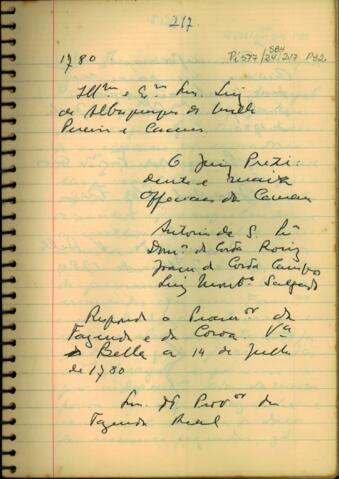 217
1780
Pi 577/SB4/24/217 P32
Illmo e Exmo Snr. Luiz
de Albuquerque de Mello
Pereira e Caceres.
O Juiz Prezi-
dente e mais
Officiaes da Camara
Antonio de S.
Domos da Costa Roiz
Joam da Costa Campos
Luiz Montro Salgado
Responda o Procuror da
Fazenda e da Coroa Va
Bella a 14 de Julho
de 1780
Snr. Dr Provor da
Fazenda Real